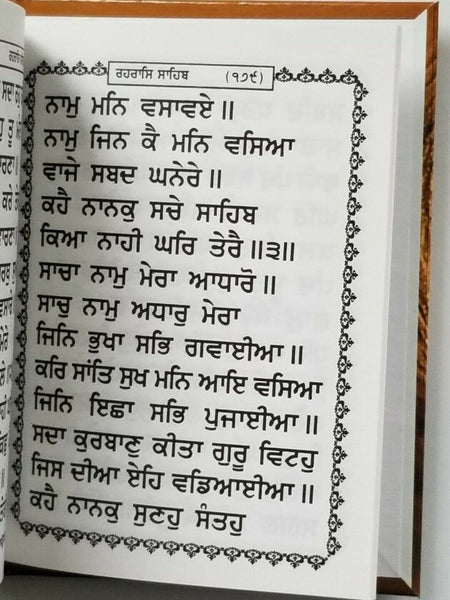 ਰਹਰਾਸਿ ਸਾਹਿਬ (੧੭੯)
ਨਾਮੁ ਮਨਿ ਵਸਾਵਏ ॥
ਨਾਮੁ ਜਿਨ ਕੈ ਮਨਿ ਵਸਿਆ
ਵਾਜੇ ਸਬਦ ਘਨੇਰੇ ॥
ਕਹੈ ਨਾਨਕੁ ਸਚੇ ਸਾਹਿਬ
ਕਿਆ ਨਾਹੀ ਘਰਿ ਤੇਰੈ ॥੩॥
ਸਾਚਾ ਨਾਮੁ ਮੇਰਾ ਆਧਾਰੋ ॥
ਸਾਚੁ ਨਾਮੁ ਅਧਾਰੁ ਮੇਰਾ
ਜਿਨਿ ਭੁਖਾ ਸਭਿ ਗਵਾਈਆ ॥
ਕਰਿ ਸਾਂਤਿ ਸੁਖ ਮਨਿ ਆਇ ਵਸਿਆ
ਜਿਨਿ ਇਛਾ ਸਭਿ ਪੁਜਾਈਆ ॥
ਸਦਾ ਕੁਰਬਾਣੁ ਕੀਤਾ ਗੁਰੂ ਵਿਟਹੁ
ਜਿਸ ਦੀਆ ਏਹਿ ਵਡਿਆਈਆ ॥
ਕਹੈ ਨਾਨਕੁ ਸੁਣਹੁ ਸੰਤਹੁ